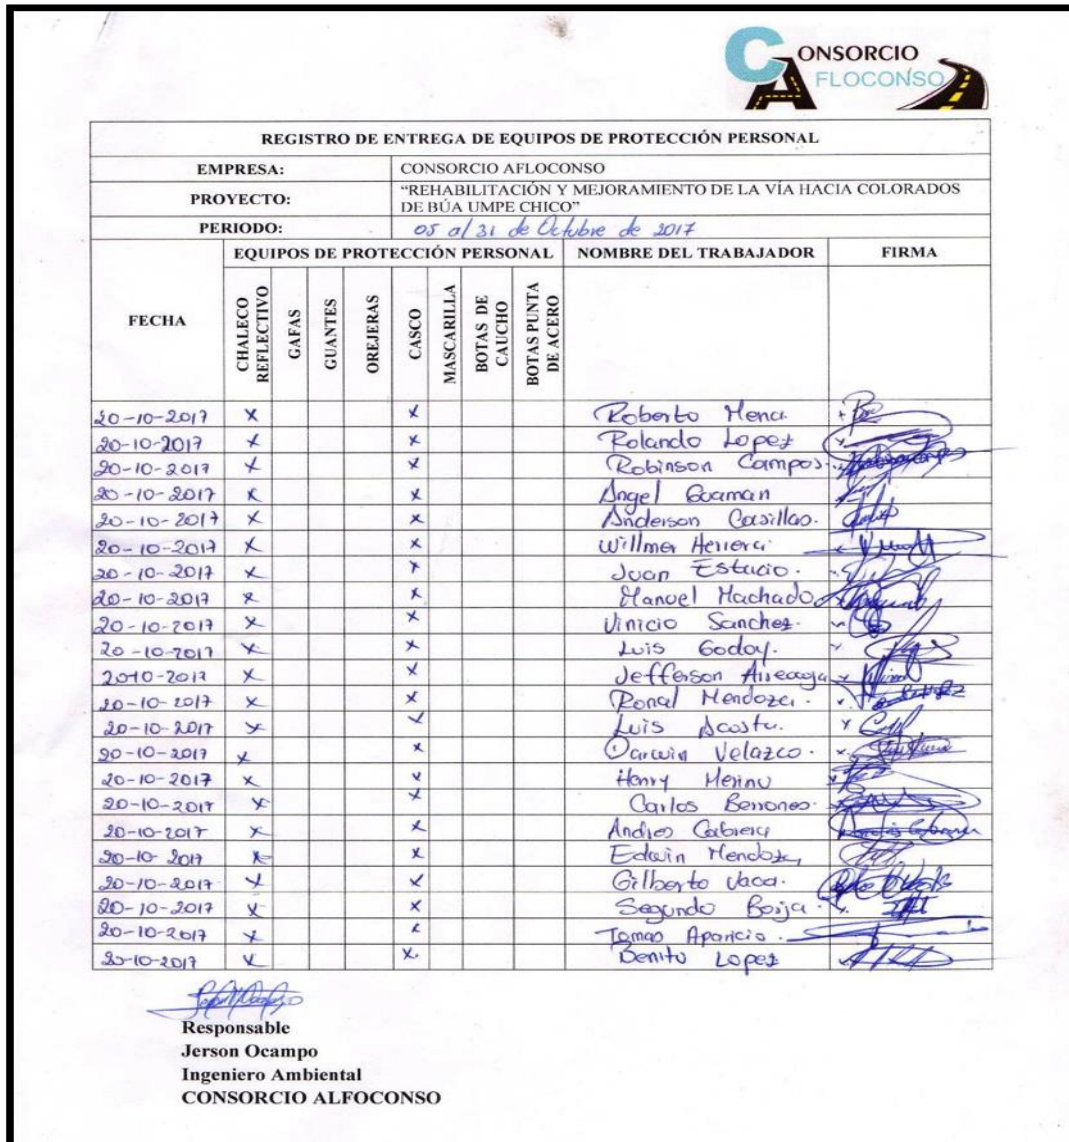 CONSORCIO
AFLOCONSO
REGISTRO DE ENTREGA DE EQUIPOS DE PROTECCIÓN PERSONAL
EMPRESA: CONSORCIO AFLOCONSO
PROYECTO: “REHABILITACIÓN Y MEJORAMIENTO DE LA VÍA HACIA COLORADOS
DE BÚA UMPE CHICO”
PERIODO: 05 al 31 de Octubre de 2017
FECHA EQUIPOS DE PROTECCIÓN PERSONAL NOMBRE DEL TRABAJADOR FIRMA
CHALECO REFLECTIVO GAFAS GUANTES OREJERAS CASCO MASCARILLA BOTAS DE CAUCHO BOTAS PUNTA DE ACERO
20-10-2017 x x Roberto Mena
20-10-2017 x x Rolando Lopez
20-10-2017 x x Robinson Campos
20-10-2017 x x Angel Guaman
20-10-2017 x x Anderson Casillas.
20-10-2017 x x Willmer Herrera
20-10-2017 x x Juan Estacio.
20-10-2017 x x Manuel Machado
20-10-2017 x x Vinicio Sanchez.
20-10-2017 x x Luis Godoy.
2010-2017 x x Jefferson
20-10-2017 x x Ronal Mendoza.
20-10-2017 x x Luis Acosta.
20-10-2017 x x Darwin Velazco.
20-10-2017 x x Henry Merino
20-10-2017 x x Carlos Berrones.
20-10-2017 x x Andres Cabrera
20-10-2017 x x Edwin Mendoza
20-10-2017 x x Gilberto Vaca.
20-10-2017 x x Segundo Borja.
20-10-2017 x x Tomas Aparicio.
20-10-2017 x x Benito Lopez
Responsable
Jerson Ocampo
Ingeniero Ambiental
CONSORCIO ALFOCONSO